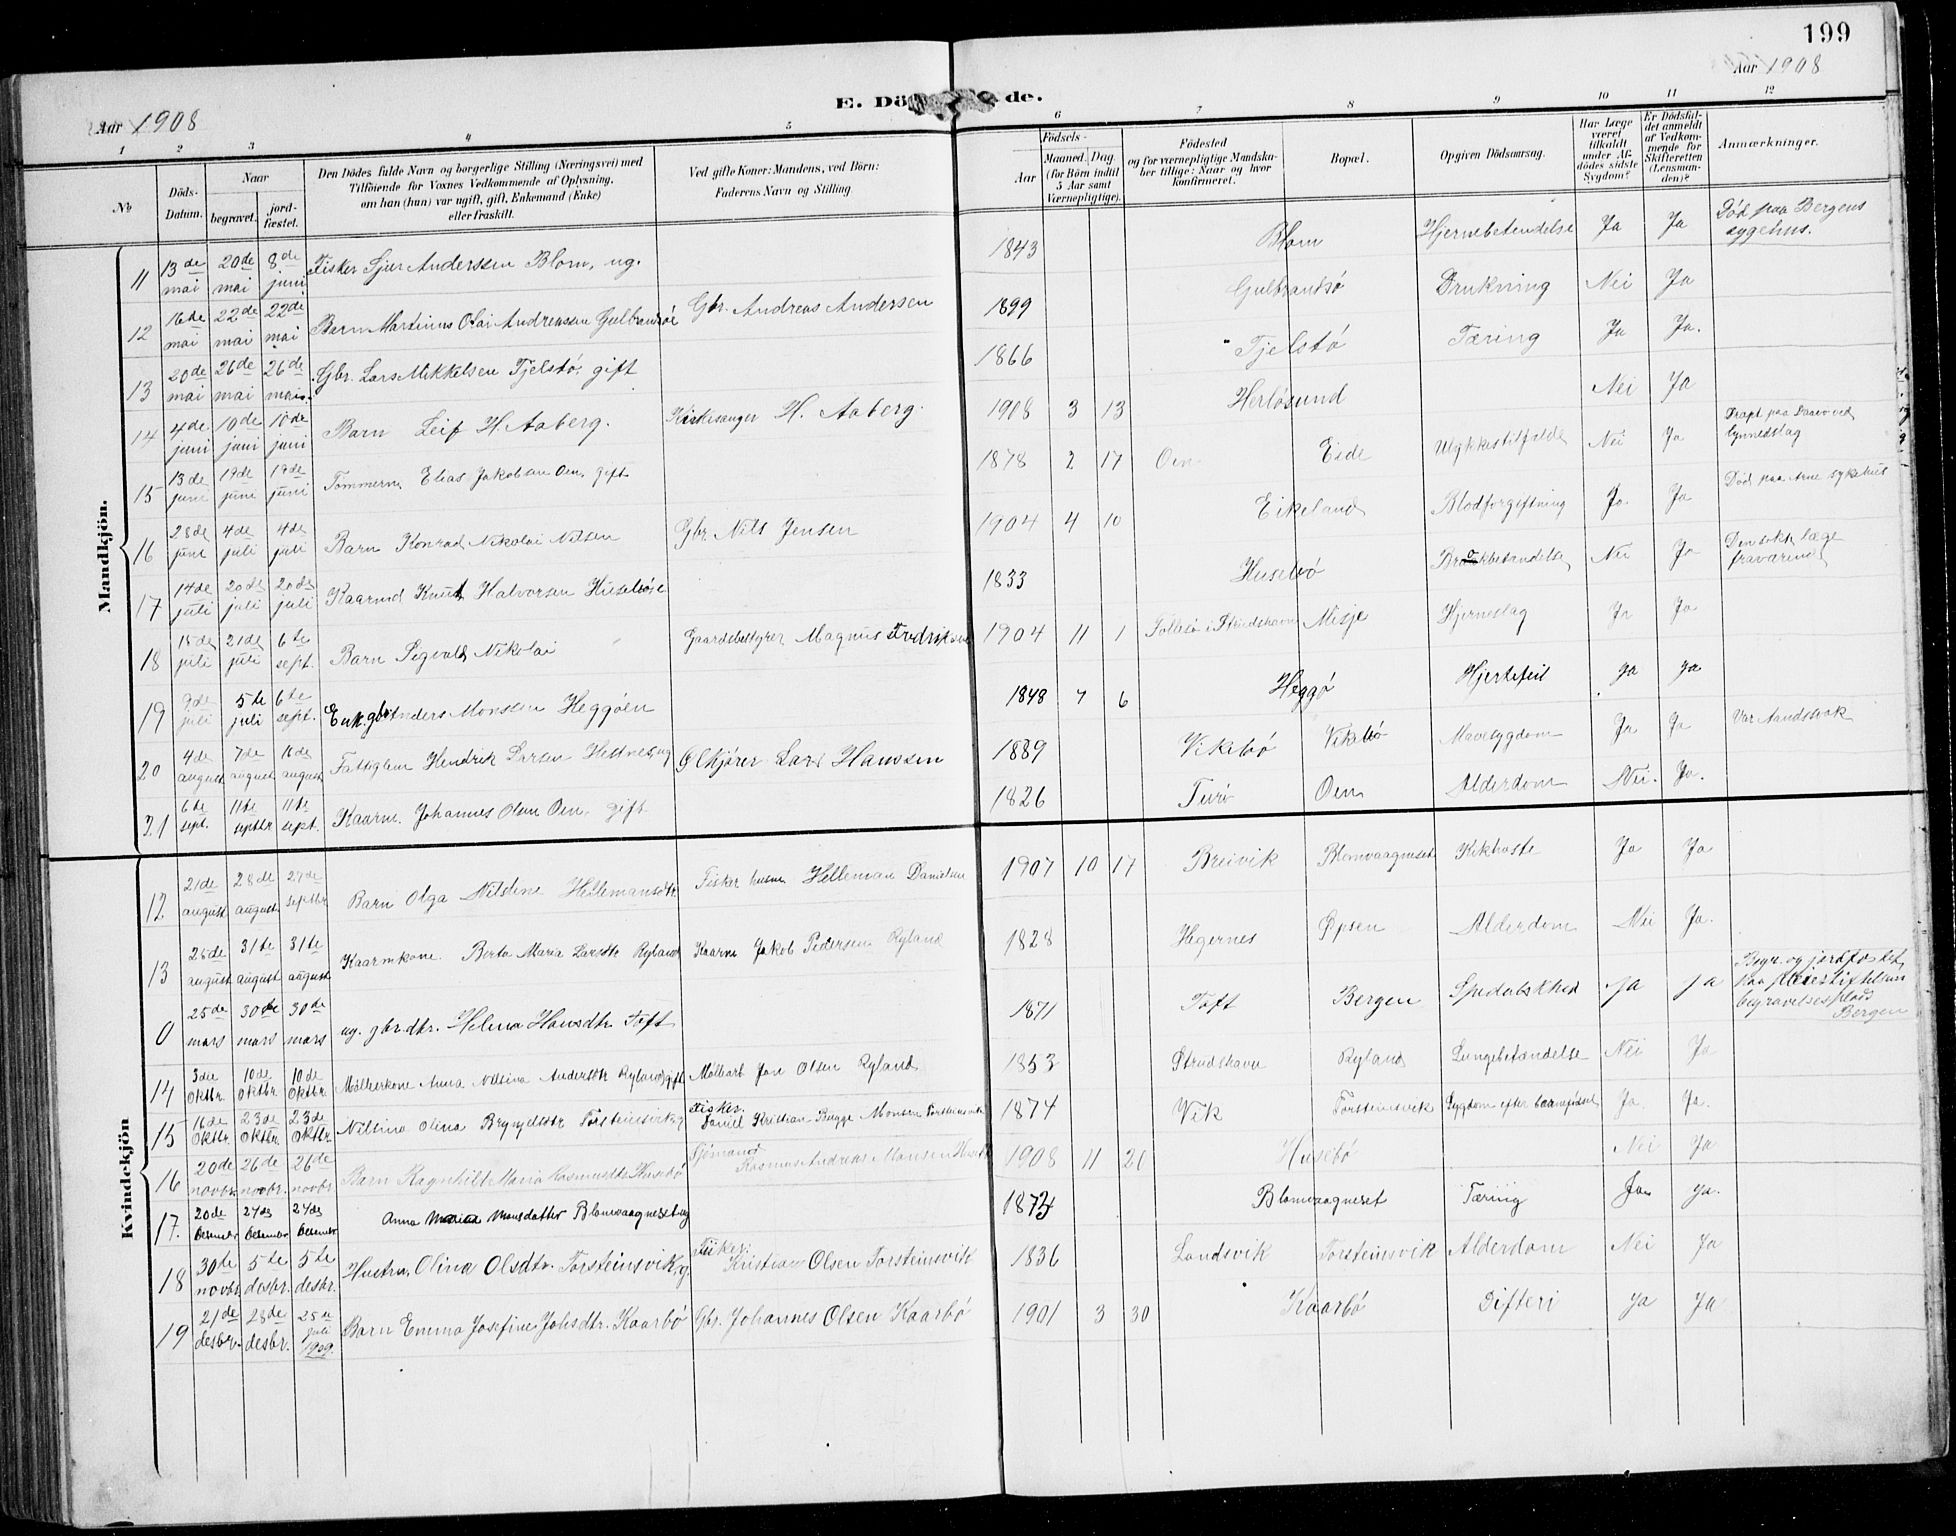 199
Aar 1908
Aar 1908
E. Dö de.
1 2 3 4 5 6 7 8 9 10 11 12
№
Döds-Datum.
Naar begravet. jordfæstet.
Den Dödes fulde Navn og borgerlige Stilling (Næringsvei) med Tilföiende for Voxnes Vedkommende af Oplysning, om han (hun) var ugift, gift, Enkemand (Enke) eller fraskilt.
Ved gifte Koner: Mandens, ved Börn: Faderens Navn og Stilling.
Födsels- Aar Maaned. Dag. (for Börn indtil 5 Aar samt Værnepligtige).
Födested og for værnepligtige Mandskaber tillige: Naar og hvor konfirmeret.
Bopæl.
Opgiven Dödsaarsag.
Har Læge været tilkaldt under Afdödes sidste Sygdom?
Er Dödsfaldet anmeldt af Vedkommende for Skifteretten (Lensmanden)?
Anmærkninger.
Mandkjön.
11 13de mai 20de mai 8de juni Fisker Sjur Anderssen Blom, ug. 1843 Blom Hjernebetendelse Ja Ja Död paa Bergens sygehus.
12 16de mai 22de mai 22de mai Barn Martinus Olai Andreassen Gulbrandsöe Gbr. Andreas Andersen 1899 Gulbrandsö Drukning Nei Ja
13 20de mai 26de mai 26de mai Gbr. Lars Mikkelsen Tjelstö, gift 1866 Tjelstö Tæring Ja Ja.
14 4de juni 10de juni 10de juni Barn Leif H. Aaberg. Kirkesanger H. Aaberg. 1908 3 13 Herlösund Nei Ja
15 13de juni 17de juni 17de juni Tömmerm. Elias Jakobsen Oen, gift 1878 2 17 Oen Eide Ulykkestilfælde Nei Ja Dræpt paa ved lynnedslag
16 28de juni 4de juli 4de juli Barn Konrad Nikolai Nilsen Gbr. Nils Jensen 1904 4 10 Eikeland Blodforgiftning Ja Ja Död paa Arne sykehus
17 14de juli 20de juli 20de juli Kaarmd Knut Halvorsen Huseböe 1833 Husebö Brokbetændelse Nei Ja Den sökte læge fraværende
18 15de juli 21de juli 6te sept. Barn Sigvald Nikolai Gaardsbestyrer Magnus Fredriksen 1904 11 1 Tollesö i Strudshavn Misje Hjerneslag Ja Ja
19 9de juli 5te juli 6te sept. Enk. gbr Anders Monssen Heggöen 1848 7 6 Heggö Hjertefeil Ja Ja
20 4de august 7de august 16de august Fattiglem Hendrik Larsen Hestnes ug Larsd Hanssen 1889 Vikebö Vikebö Mavesygdom Ja Ja Var Aandssvak
21 6te sept. 11te septbr 11te sept. Kaarm. Johannes Olsen Oen. gift 1826 Turö Oen Alderdom Nei. Ja.
Kvindekjön
12. 21de august 28de august 27de septbr Barn Olga Nilsine Hellemansdtr Fisker husm Helleman Danielsen 1907 10 17 Breivik Blomvaagneset Kikhoste Ja Ja
13 25de august 31te august 31te august Kaarmkone. Berta Maria Larsdtr Ryland Kaarm Jakob Pedersen Ryland 1828 Hegernes Öpsen Alderdom Nei Ja.
0 25de mars 30de mars 30de mars ug. gbr.dtr. Helena Hansdtr. Toft 1871 Toft Bergen Spedalskhed Ja Ja Begr. og jordfæstet paa pleiestiftelsens begravelsesplads Bergen
14 3die Oktbr. 10de Oktbr. 10de Oktbr. Mölkerkone Anna Nilsina Andersdtr Ryland gift Jon Olsen Ryland 1853 Strudshavn Ryland Lungebetændelse Nei Ja
15 16de Oktbr. 23de Oktbr. 23de Oktbr. Nilsina Olina Brynyldsdtr Torsteinsvik g Fisker. Daniel Kristian Bugge Monsen Torsteinsvik 1874 Vik Torsteinsvik Sygdom efter barnfödsel Ja. Ja.
16 20de novbr. 26de novbr. 26de novbr Barn Ragnhilt Maria Rasmusdtr Husebö Sjömand Rasmus Andreas Monsen Husebö 1908 11 20 Husebö Nei Ja
17. 20de desember 27de desember 27de desember Anna Maria Monsdatter Blomvaagneset ug 1873 Blomvaagneset Tæring Ja Ja.
18 30te novbr 5te desbr. 5te desbr. Hustru, Olina Olsdtr. Torsteinsvik, g. Fisker. Kristian Olsen Torsteinsvik 1836 Landsvik Torsteinsvik Alderdom Nei Ja
19 21de desbr. 28de desbr. 25de juli 1909. Barn Emma Josefine Johsdtr. Kaarbö Gbr. Johannes Olsen Kaarbö 1901 3 30 Kaarbö Difteri Ja Ja